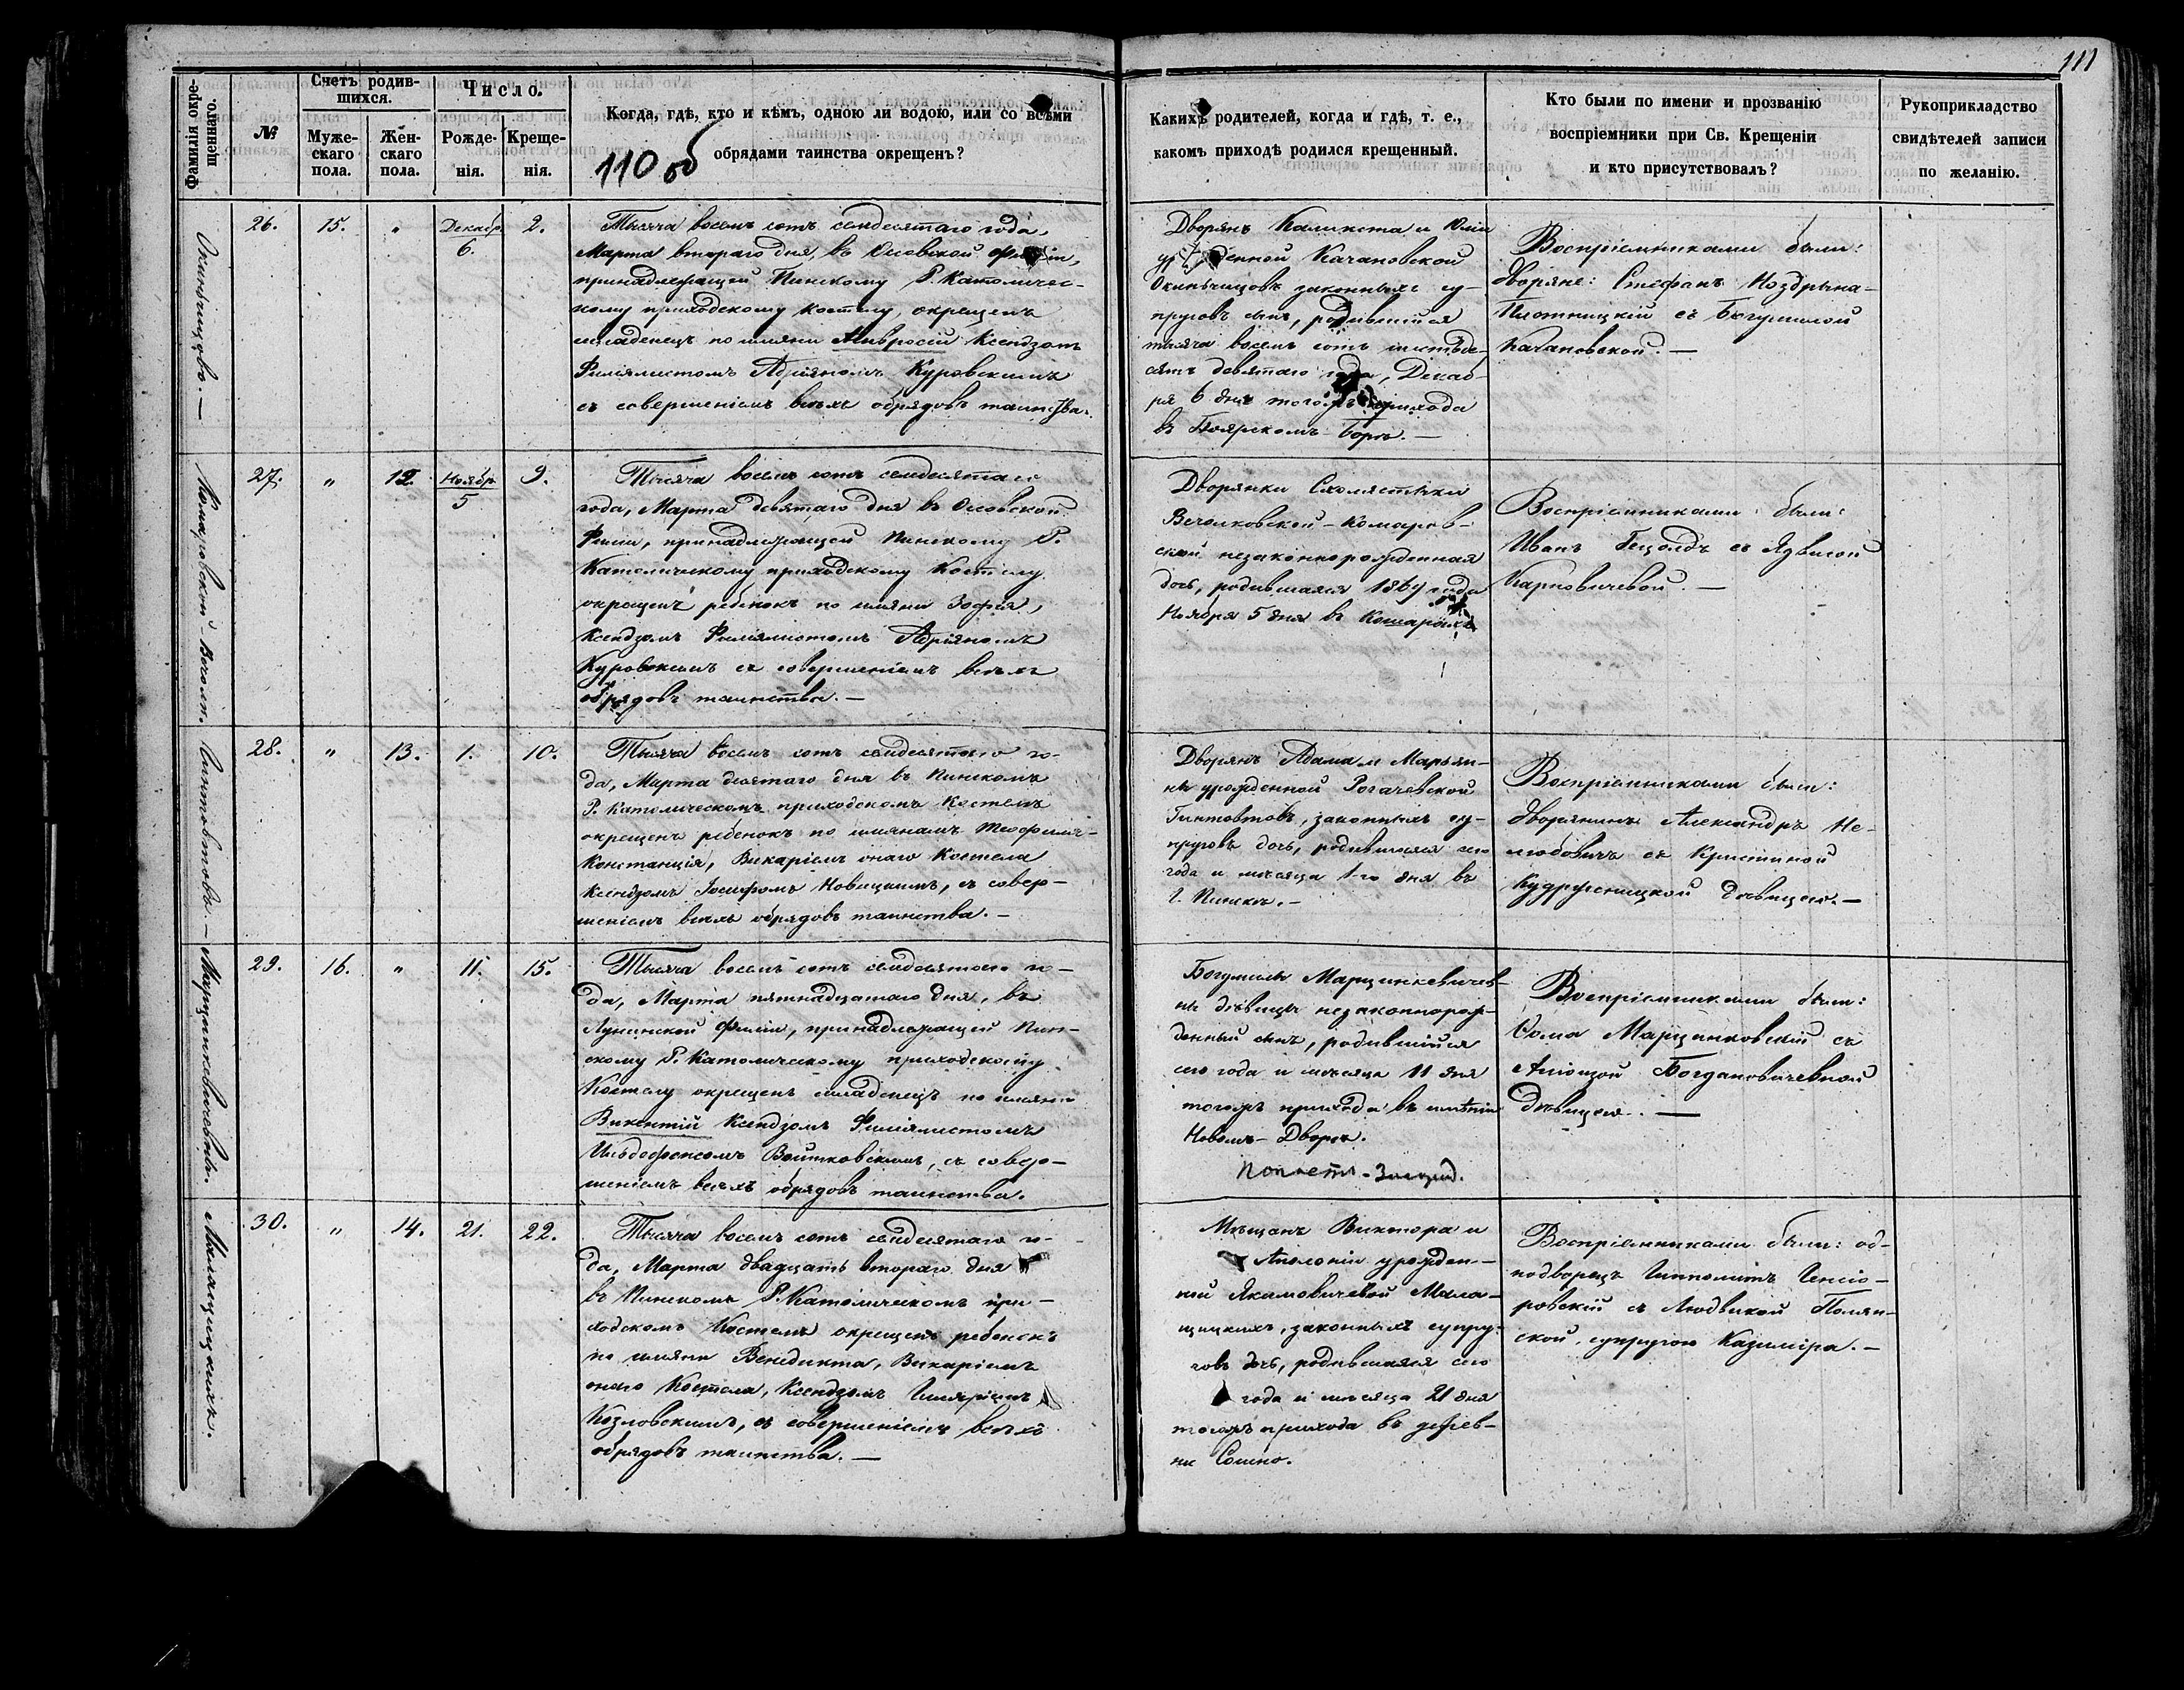 111
Фамилія окре-
щеннаго.
№
Счетъ родив-
шихся.
Муже-
скаго
пола.
Жен-
скаго
пола.
Число.
Рожде-
нія.
Креще-
нія.
Когда, гдѣ, кто и кѣмъ, одною ли водою, или со всѣми
обрядами таинства окрещенъ?
110 об
Какихъ родителей, когда и гдѣ, т. е.,
какомъ приходѣ родился крещенный.
Кто были по имени и прозванію
воспріемники при Св. Крещеніи
и кто присутствовалъ?
Рукоприкладство
свидѣтелей записи
по желанію.
26.
15.
"
Декабр.
6.
2.
Тысяча восемь сотъ семдесятаго года,
Марта втораго дня, въ Осовской
принадлежащей Пинскому Р. Католичес-
кому приходскому костелу, окрещенъ
младенецъ по имяни Амвросій Ксендзомъ
Филіялистомъ Адріяномъ Куровскимъ
съ совершеніемъ всѣхъ обрядовъ таинства.
Дворянъ Каликста и Юліи
Качановской
Окинчицовъ законныхъ су-
пруговъ сынъ, родившійся
тысяча восемь сотъ шестьде-
сятъ девятаго года, Декаб-
ря 6 дня тогожъ прихода
въ Боярскомъ-Борѣ. —
Воспріемниками были:
дворяне: Стефанъ Ноздрына-
Плотницкій съ Богумилой
Качановской. —
Комаровской-Вечолк.
27.
"
12.
Ноябр.
5
9.
Тысяча восемь сотъ семдесятаго
года, Марта девятаго дня въ Осовской
Филіи, принадлежащей Пинскому Р.
Католическому приходскому Костелу
окрещенъ ребенокъ по имяни Зофія,
Ксендзомъ Филіялистомъ Адріяномъ
Куровскимъ съ совершеніемъ всѣхъ
обрядовъ таинства. —
Дворянки Схолястыки
Вечолковской-Комаров-
ской незаконнорожденная
дочь, родившаяся 1869 года
Ноября 5 дня въ Кошарахъ
Воспріемниками были:
Иванъ Гецолдъ съ Ядвигой
Карповичевой. —
Гинтовтовъ. —
28.
"
13.
1.
10.
Тысяча восемь сотъ семдесятаго го-
да, Марта десятаго дня въ Пинскомъ
Р. Католическомъ приходскомъ Костелѣ
окрещенъ ребенокъ по имянамъ Теофиля-
Констанція, Викаріемъ онаго Костела
Ксендзомъ Іосифомъ Новицкимъ, съ совер-
шеніемъ всѣхъ обрядовъ таинства. —
Дворянъ Адама и Марьян-
ны урожденной Рогачевской
Гинтовтовъ, законныхъ су-
пруговъ дочь, родившаяся сего
года и мѣсяца 1-го дня въ
г. Пинскѣ. —
Воспріемниками были:
дворянинъ Александръ Не-
любовичъ съ Кристиной
дѣвицею. —
Марцинкевичевны.
29.
16.
"
11.
15.
Тысяча восемь сотъ семдесятаго го-
да, Марта пятнадцатаго дня, въ
Лунинской Филіи, принадлежащей Пин-
скому Р. Католическому приходскому
Костелу окрещенъ младенецъ по имяни
Викентій Ксендзомъ Филіялистомъ
Ильдефонсомъ Войтковскимъ, съ совер-
шеніемъ всѣхъ обрядовъ таинства.
Богумилы Марцинкевичев-
ны дѣвицы незаконнорож-
денный сынъ, родившійся
сего года и мѣсяца 11 дня
тогожъ прихода въ имѣніи
Новомъ-Дворѣ.
Воспріемниками были:
Ѳома Марцинковскій съ
Богдановичевной
дѣвицею. —
30.
"
14.
21.
22.
Тысяча восемь сотъ семдесятаго го-
да, Марта двадцать втораго дня
въ Пинскомъ Р. Католическомъ при-
ходскомъ Костелѣ окрещенъ ребенокъ
по имяни Венедикта, Викаріемъ
онаго Костела, Ксендзомъ
Козловскимъ, съ совершеніемъ всѣхъ
обрядовъ таинства. —
Мѣщанъ Виктора и
Аполоніи урожден-
ной Якимовичевой Мала-
щицкихъ, законныхъ супру-
говъ дочь, родившаяся сего
года и мѣсяца 21 дня
тогожъ прихода въ дерев-
нѣ Сошно.
Воспріемниками были: од-
нодворецъ Ипполитъ
съ Людвикой Полян-
ской, супругою Казиміра. —